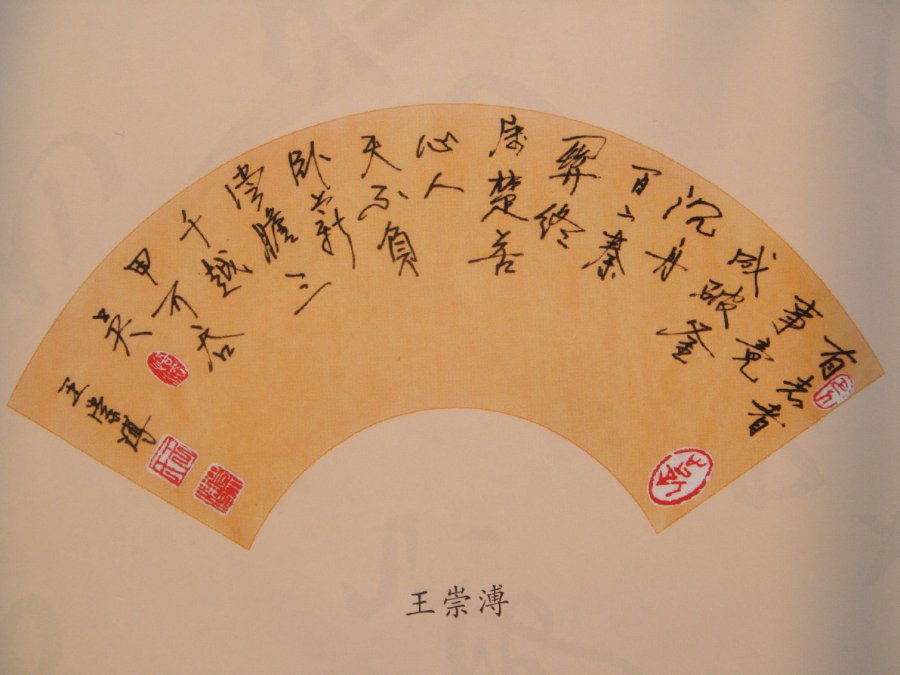 有志者
事竟
成破釜
沉舟
百二秦
關終
屬楚苦
心人
天不負
臥薪
嘗膽三
千越
甲可吞
吳
王崇溥
王崇溥